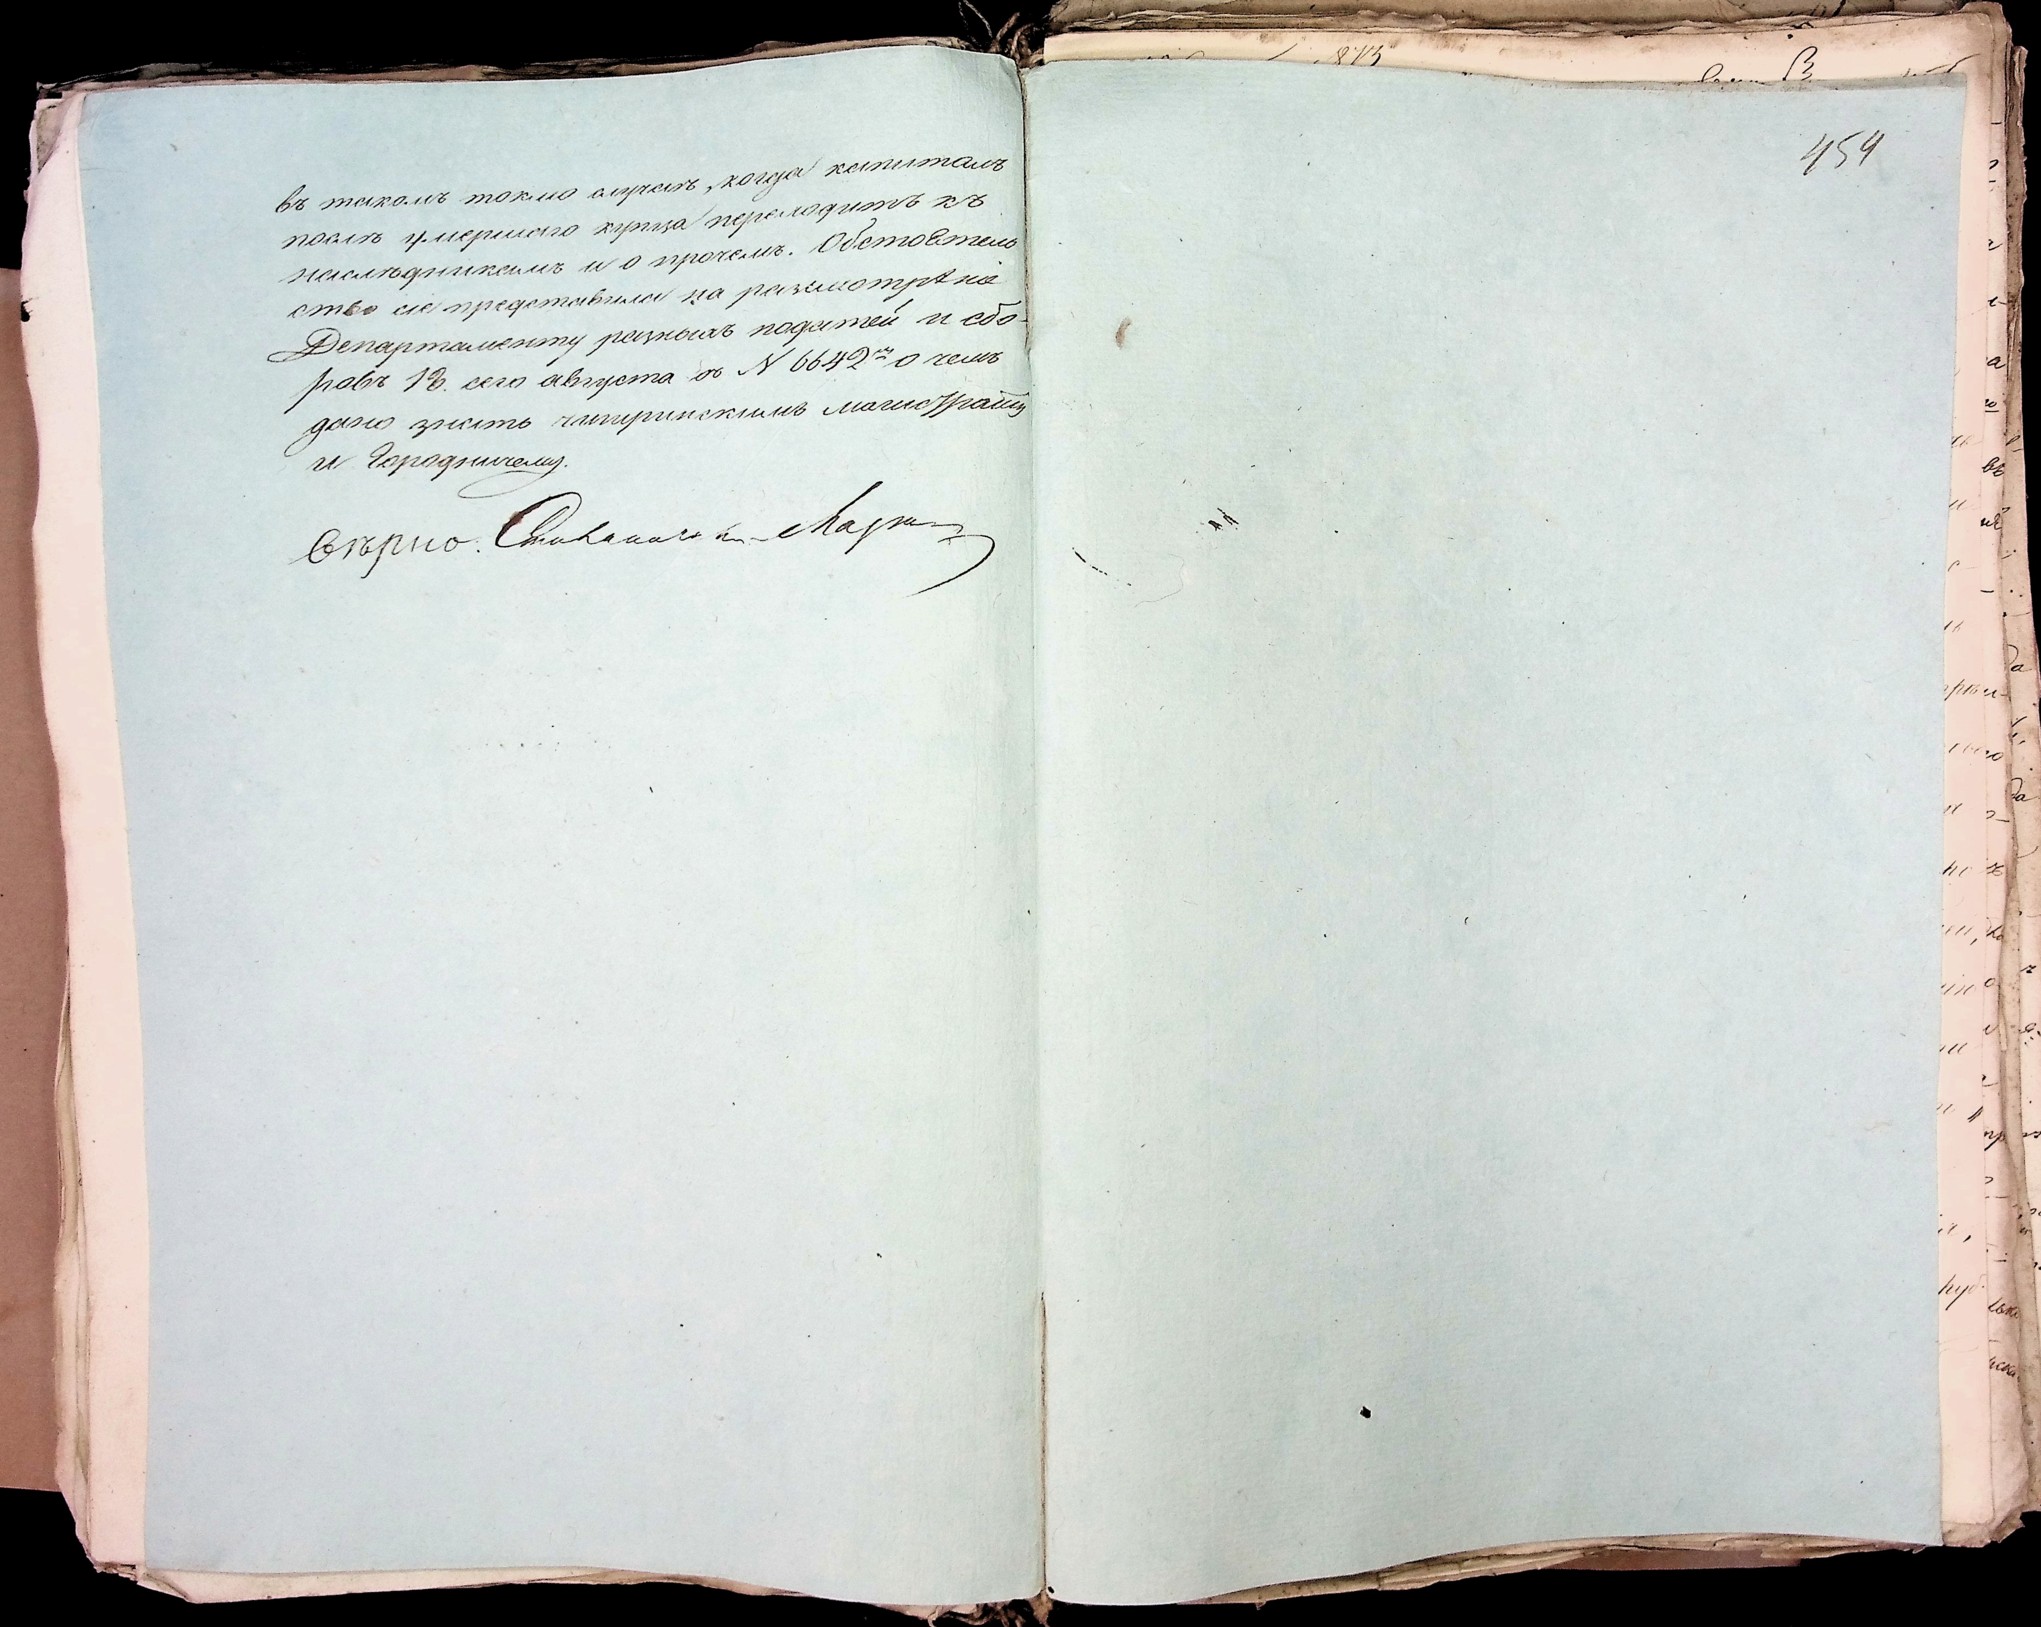 въ такомъ токмо случаѣ, когда капиталъ
послѣ умершаго купца переходитъ къ
наслѣдникамъ и о прочемъ. Обстоятель
ство сіе представила на разсмотрѣніе
Департаменту разныхъ податей и сбо-
ровъ 18. сего августа за N 6642мъ о чемъ
дано знать чигиринскимъ магистрату
и Городничему.
Вѣрно.
454